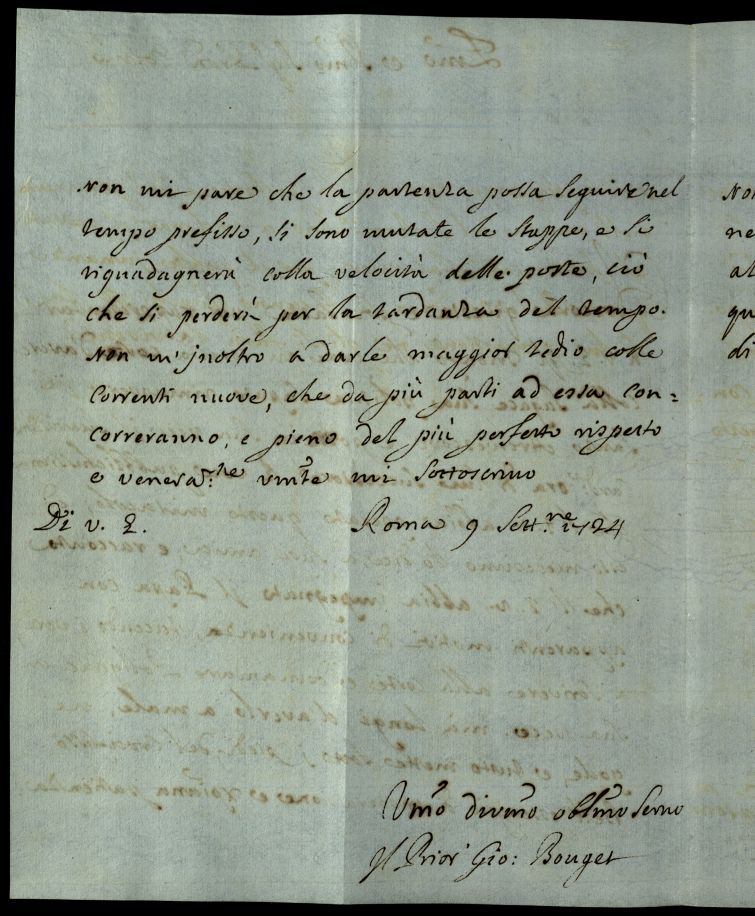 Non mi pare che la partenza possa seguire nel
tempo prefisso, si sono mutate le stappe, e si
riguadagnerà colla velocità delle poste, ciò
che si perderà per la tardanza del tempo.
Non m'inoltro a darle maggior tedio colle
correnti nuove, che da più parti ad essa con=
correranno, e pieno del più perfetto rispetto
e venera:ne umte mi sottoscrivo
Di V. E. Roma 9 Sett.re 1724
Umo divmo oblmo Servo
Il Prior Gio: Bouget
No
ne
al
qu
di